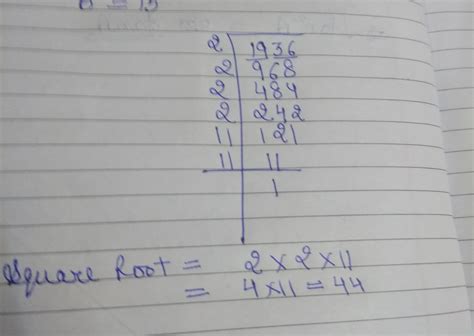 2 1936
2 968
2 484
2 242
11 121
11 11
1
Square Root = 2 × 2 × 11
= 4 × 11 = 44